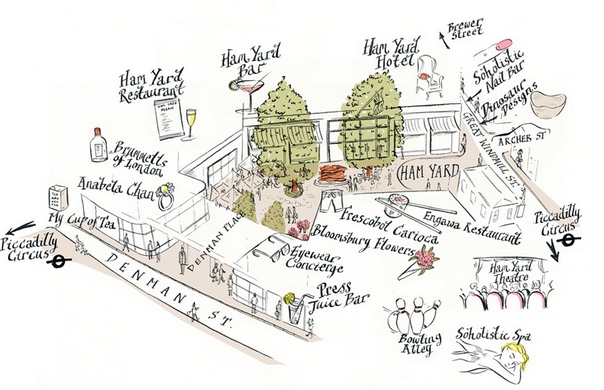 Brewer
Street
Ham Yard
Bar
Ham Yard
Hotel
Ham Yard
Restaurant
Soholistic
Nail Bar
Dinosaur
Designs
GREAT WINDMILL ST.
ARCHER ST
Brummells
of London
HAM YARD
Anabela Chan
My Cup of Tea
Frescobol Carioca
Engawa Restaurant
Piccadilly
Circus
Piccadilly
Circus
DENMAN PLACE
Bloomsbury Flowers
Eyewear
Concierge
DENMAN ST.
Press
Juice Bar
Ham Yard
Theatre
Bowling
Alley
Soholistic Spa